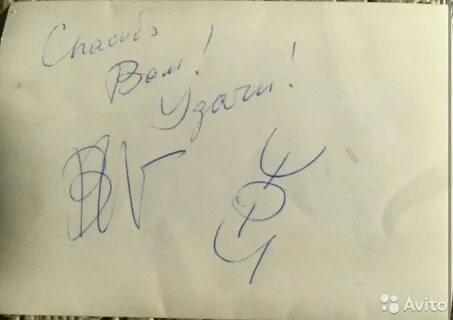 Спасибо
Вам!
Удачи!
Avito